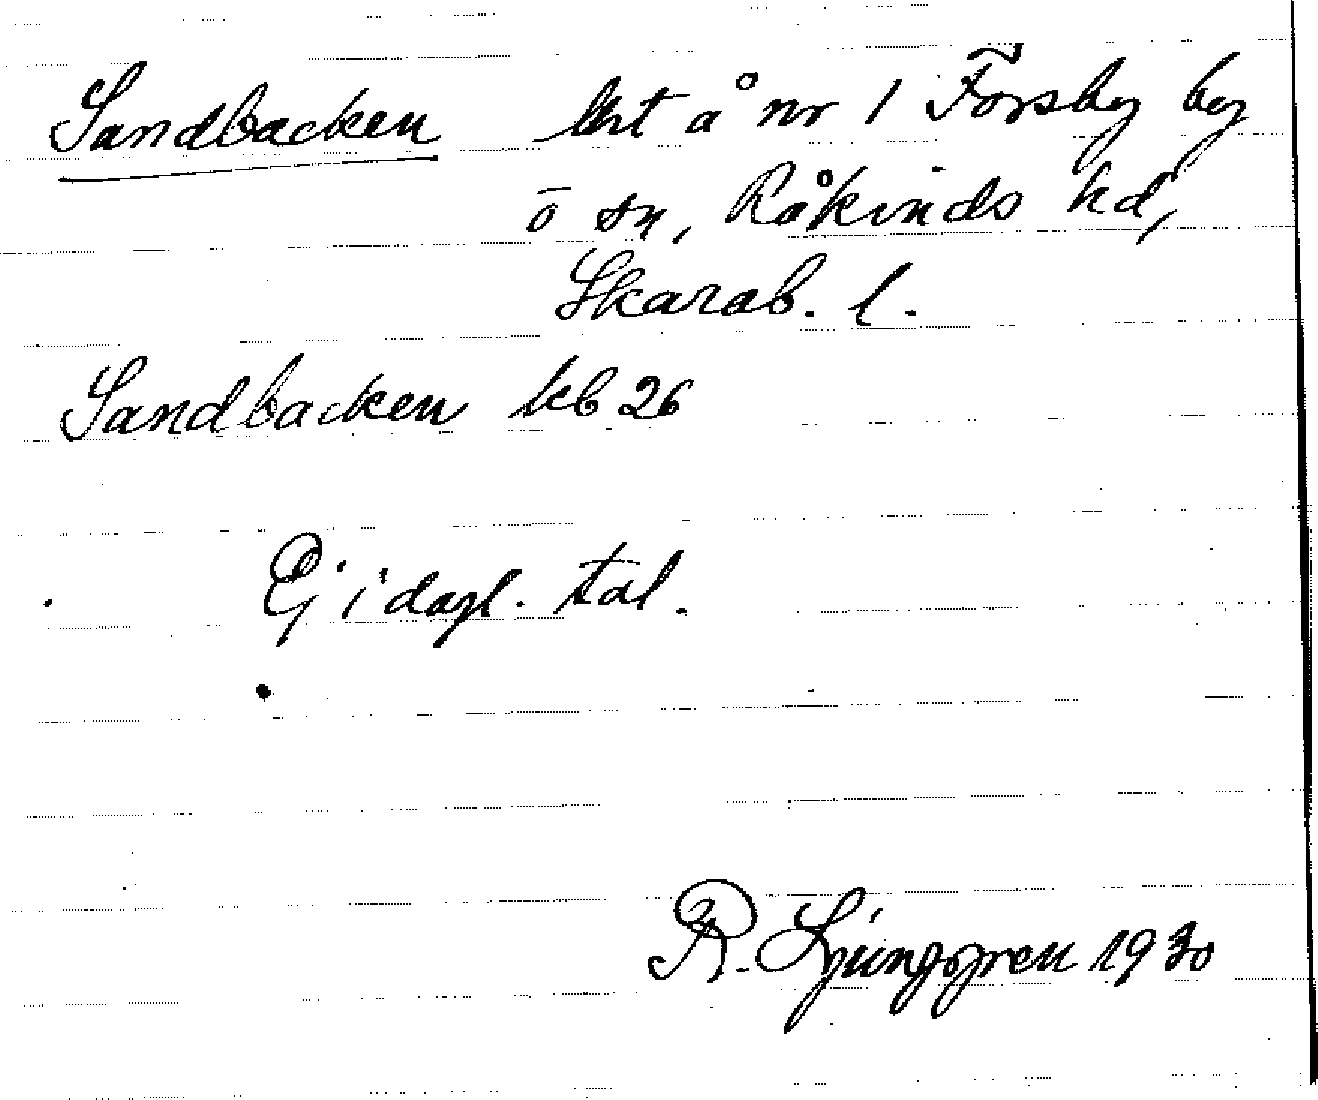 Sandbacken lht å nr 1 Forsby by
o sn, Kåkinds hd,
Skarab. l.
Sandbacken kb 26
Ej i dagl. tal.
R. Ljunggren 1930